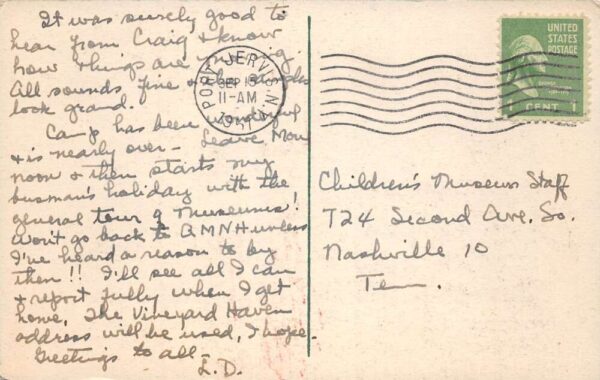 It was surely good to
hear from Craig & know
how things are
All sounds fine &
look grand.
Camp has been wonderful
& is nearly over - Leave Mon
noon & then starts my
busman's holiday with the
general tour of Museums!
Won't go back to BMNH unless
I've heard a reason to by
then!! I'll see all I can
& report fully when I get
home. The Vineyard Haven
address will be used, I hope.
Greetings to all -
L.D.
PORT JERVIS, N.Y.
SEP 15
11-AM
1951
UNITED
STATES
POSTAGE
1 CENT 1
Children's Museum Staff
724 Second Ave. So.
Nashville 10
Tenn.